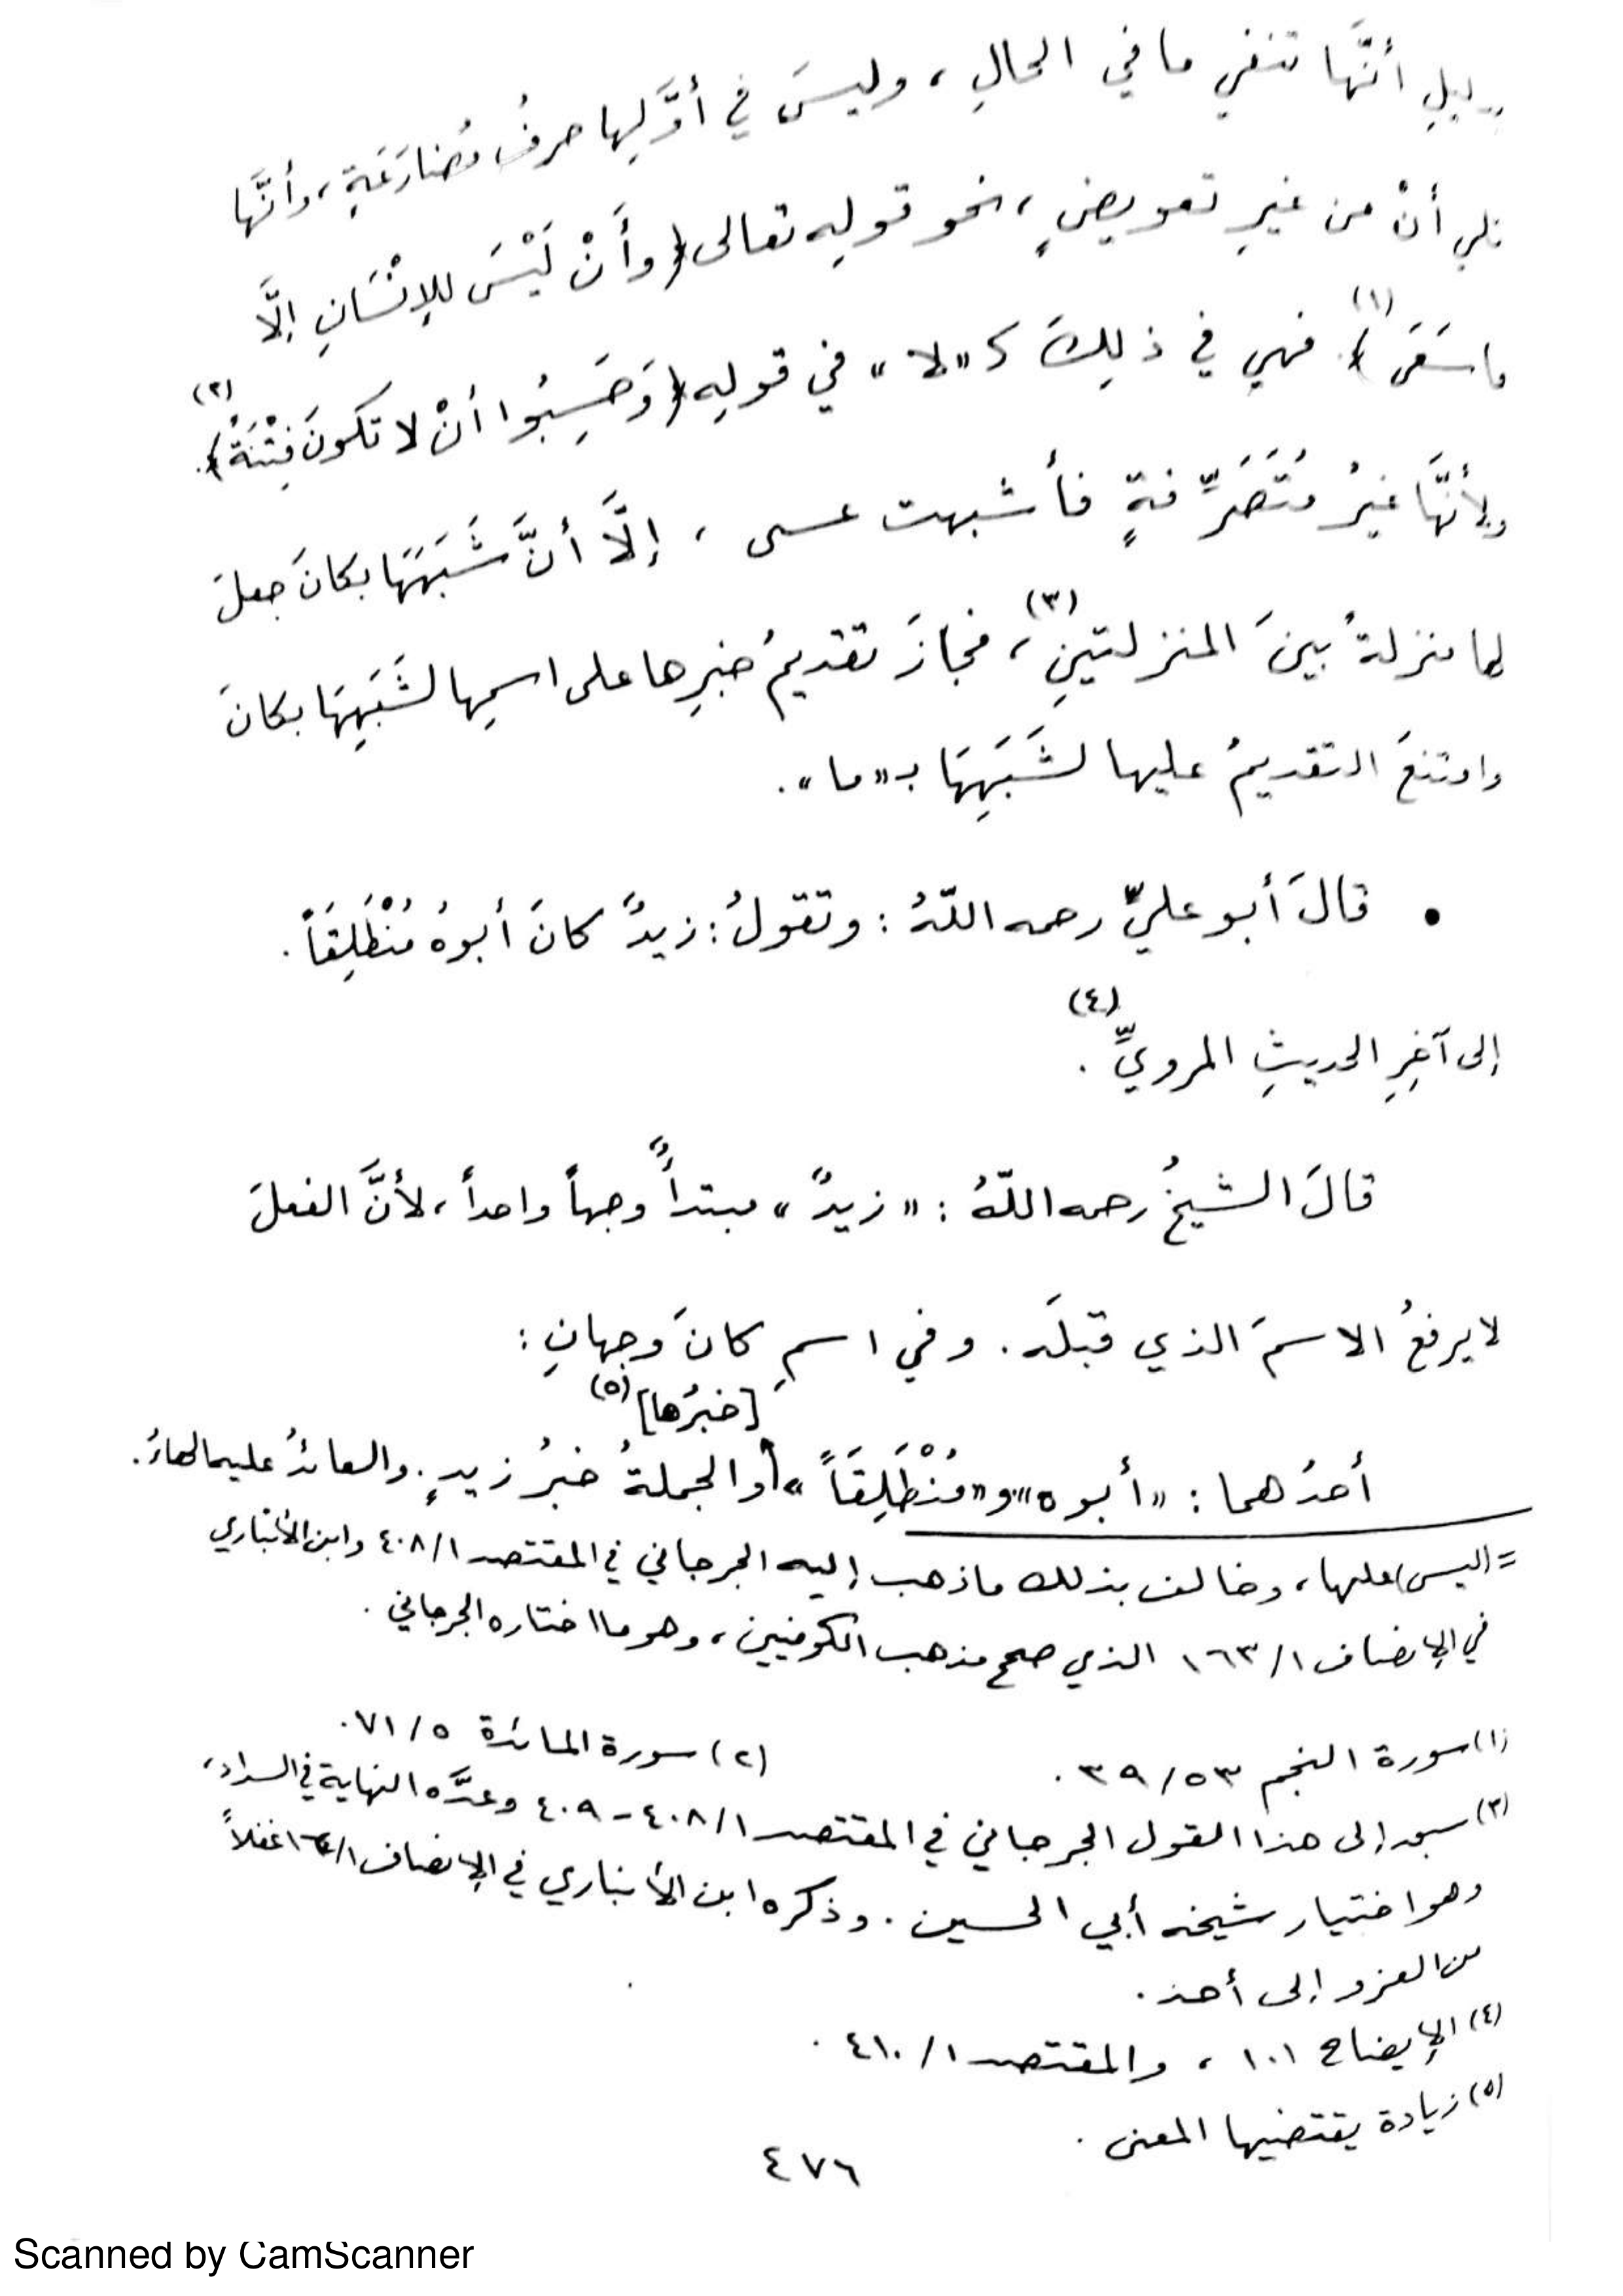 بدليلِ أنَّها تنفي ما في الحالِ ، وليسَ في أوَّلِها حرفُ مُضارَعَةٍ ، وأنَّها
تلي أنْ من غيرِ تعويضٍ ، نحو قولِه تعالى ﴿وأَنْ لَيْسَ للإِنْسَانِ إلَّا
ما سَعَى﴾(١) . فهي في ذلِكَ كـ «لا» في قولِه ﴿وَحَسِبُوا أنْ لا تكونَ فِتْنَةٌ﴾(٢) .
ولأنَّها غيرُ مُتَصَرِّفةٍ فأشبهت عسى ، إلَّا أنَّ شَبَهَهَا بكانَ جعلَ
لها منزلةً بينَ المنزلتينِ(٣) ، فجازَ تقديمُ خبرِها على اسمِها لشَبَهِهَا بكانَ
وامتنعَ التقديمُ عليها لشَبَهِهَا بـ «ما» .
• قالَ أبو عليٍّ رحمه اللّهُ : وتقولُ : زيدٌ كانَ أبوهُ مُنْطَلِقَاً .
إلى آخِرِ الحديثِ المرويِّ(٤) .
قالَ الشيخُ رحمه اللّهُ : «زيدٌ» مبتدأٌ وجهاً واحداً ، لأنَّ الفعلَ
لا يرفعُ الاسمَ الذي قبلَه . وفي اسمِ كانَ وجهانِ :
[خبرُها](٥)
أحدُهما : «أبوه» و «مُنْطَلِقَاً» والجملةُ خبرُ زيدٍ . والعائدُ عليه الهاءُ .
= (ليس) عليها ، وخالف بذلك ما ذهب إليه الجرجاني في المقتصد ٤٠٨/١ وابن الأنباري
في الإنصاف ١٦٣/١ الذي صحح مذهب الكوفيين ، وهو ما اختاره الجرجاني .
(١) سورة النجم ٣٩/٥٣ . (٢) سورة المائدة ٧١/٥ .
(٣) سبق إلى هذا القول الجرجاني في المقتصد ٤٠٨/١ - ٤٠٩ وعدَّه النهاية في السداد ،
وهو اختيار شيخه أبي الحسين . وذكره ابن الأنباري في الإنصاف ١/ غفلاً
من العزو إلى أحد .
(٤) الإيضاح ١٠١ ، والمقتصد ٤١٠/١ .
(٥) زيادة يقتضيها المعنى .
٤٧٦
Scanned by CamScanner